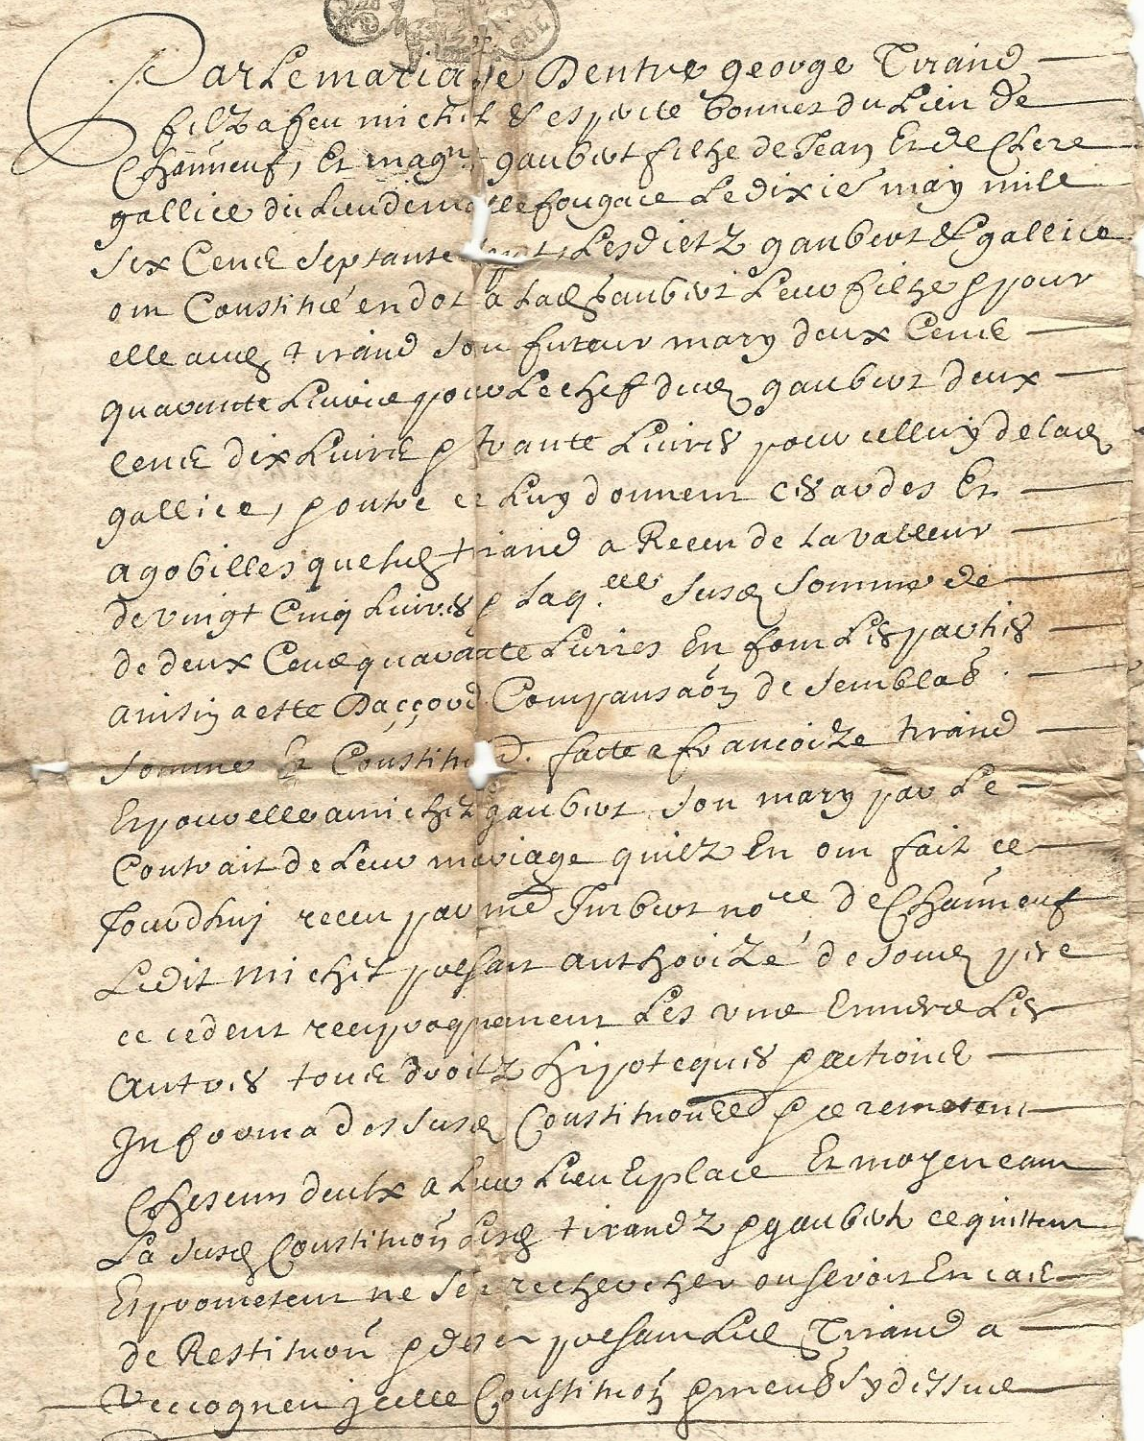 Par Le mariage Dentre george Tirand
filz a feu michel & esperite bonnet du Lieu de
Chaũneuf, Et magne gaubert filhe de Jean Et de Clere
gallice du Lieu de mallefougace Le dixie may mille
six Cenꝭ septante sept Lesdictz gaubert & gallice
ont Constitué en dot a lad gaubert Leur filhe & pour
elle aud tirand son futeur mary deux Cenꝭ
quarante Livres pour Le chef dud gaubert deux
Cenꝭ dix Livres & trante Livres pour celluy de lad
gallice, & outre ce Luy donnent es ardes Et
agobilles que led tirand a Receu de la valleur
de vingt Cinq Livres & laq.elle susd somme de
de deux Cens quarante Livres En font Les parties
ainsin a este Daccord Compansaõn de semblab
somme Et Constituõ. facte a francoize tirand
Et pour elle a michel gaubert son mary par Le
Contrait de Leur mariage quilz En ont fait ce
Jourdhuj receu par me Imbert nore de Chaũneuf
Ledit michel presant authorizé de soud pere
ce cedent reciproquement Les uns Envers Les
Autres tous droitz hipoteques & actions
In forma des susd Constituõns & ce remetent
Chescun deulx a Leur Lieu Et place Et moyeneant
La susd Constituõn Lesd tirandz & gaubert ce quittent
Et prometent ne sen rechercher ou seroit En cas
de Restituõn & dicy presant Led Tirand a
Reccogneu jcelle Constituõn & meubles sy dessus